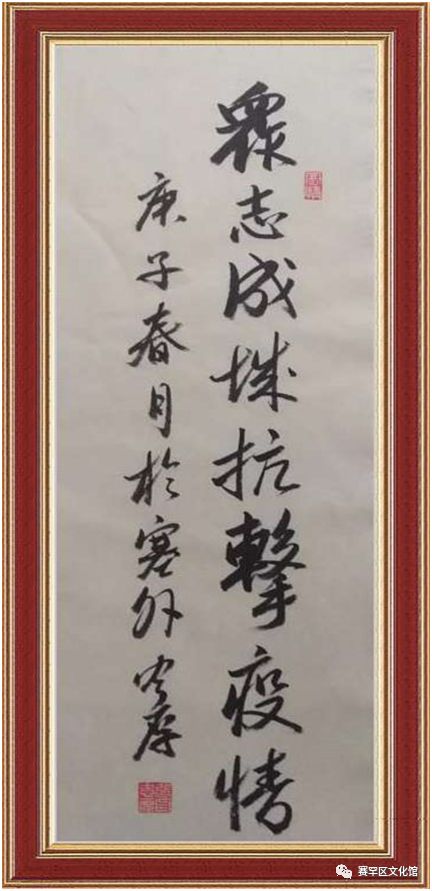 眾志成城抗擊疫情
庚子春月於塞外
賽罕区文化馆